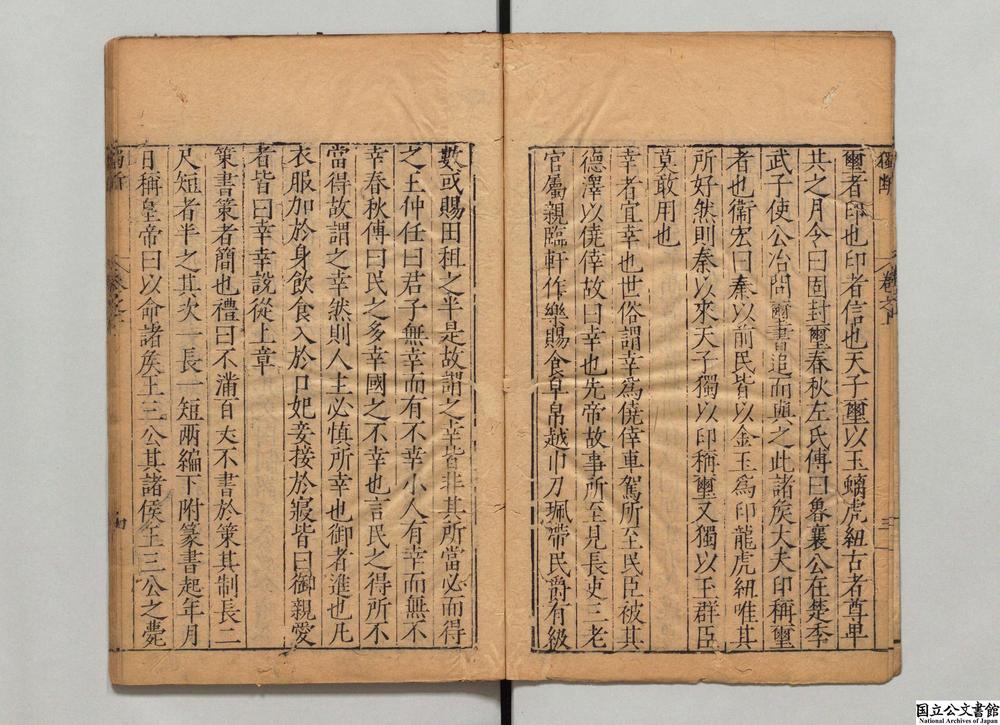 獨斷 卷之上 三
璽者印也印者信也天子璽以玉螭虎紐古者尊卑
共之月令曰固封璽春秋左氏傳曰魯襄公在楚季
武子使公冶問璽書追而與之此諸矦大夫印稱璽
者也衛宏曰秦以前民皆以金玉爲印龍虎紐唯其
所好然則秦以來天子獨以印稱璽又獨以玉群臣
莫敢用也
幸者宜幸也世俗謂幸爲僥倖車駕所至民臣被其
德澤以僥倖故曰幸也先帝故事所至見長吏三老
官屬親臨軒作樂賜食皁帛越巾刀珮帶民爵有級
數或賜田租之半是故謂之幸皆非其所當必而得
之王仲任曰君子無幸而有不幸小人有幸而無不
幸春秋傳曰民之多幸國之不幸也言民之得所不
當得故謂之幸然則人主必慎所幸也御者進也凡
衣服加於身飲食入於口妃妾接於寢皆曰御親愛
者皆曰幸幸說從上章
策書策者簡也禮曰不滿百丈不書於策其制長二
尺短者半之其次一長一短兩編下附篆書起年月
日稱皇帝曰以命諸矦王三公其諸侯王三公之薨
国立公文書館
National Archives of Japan